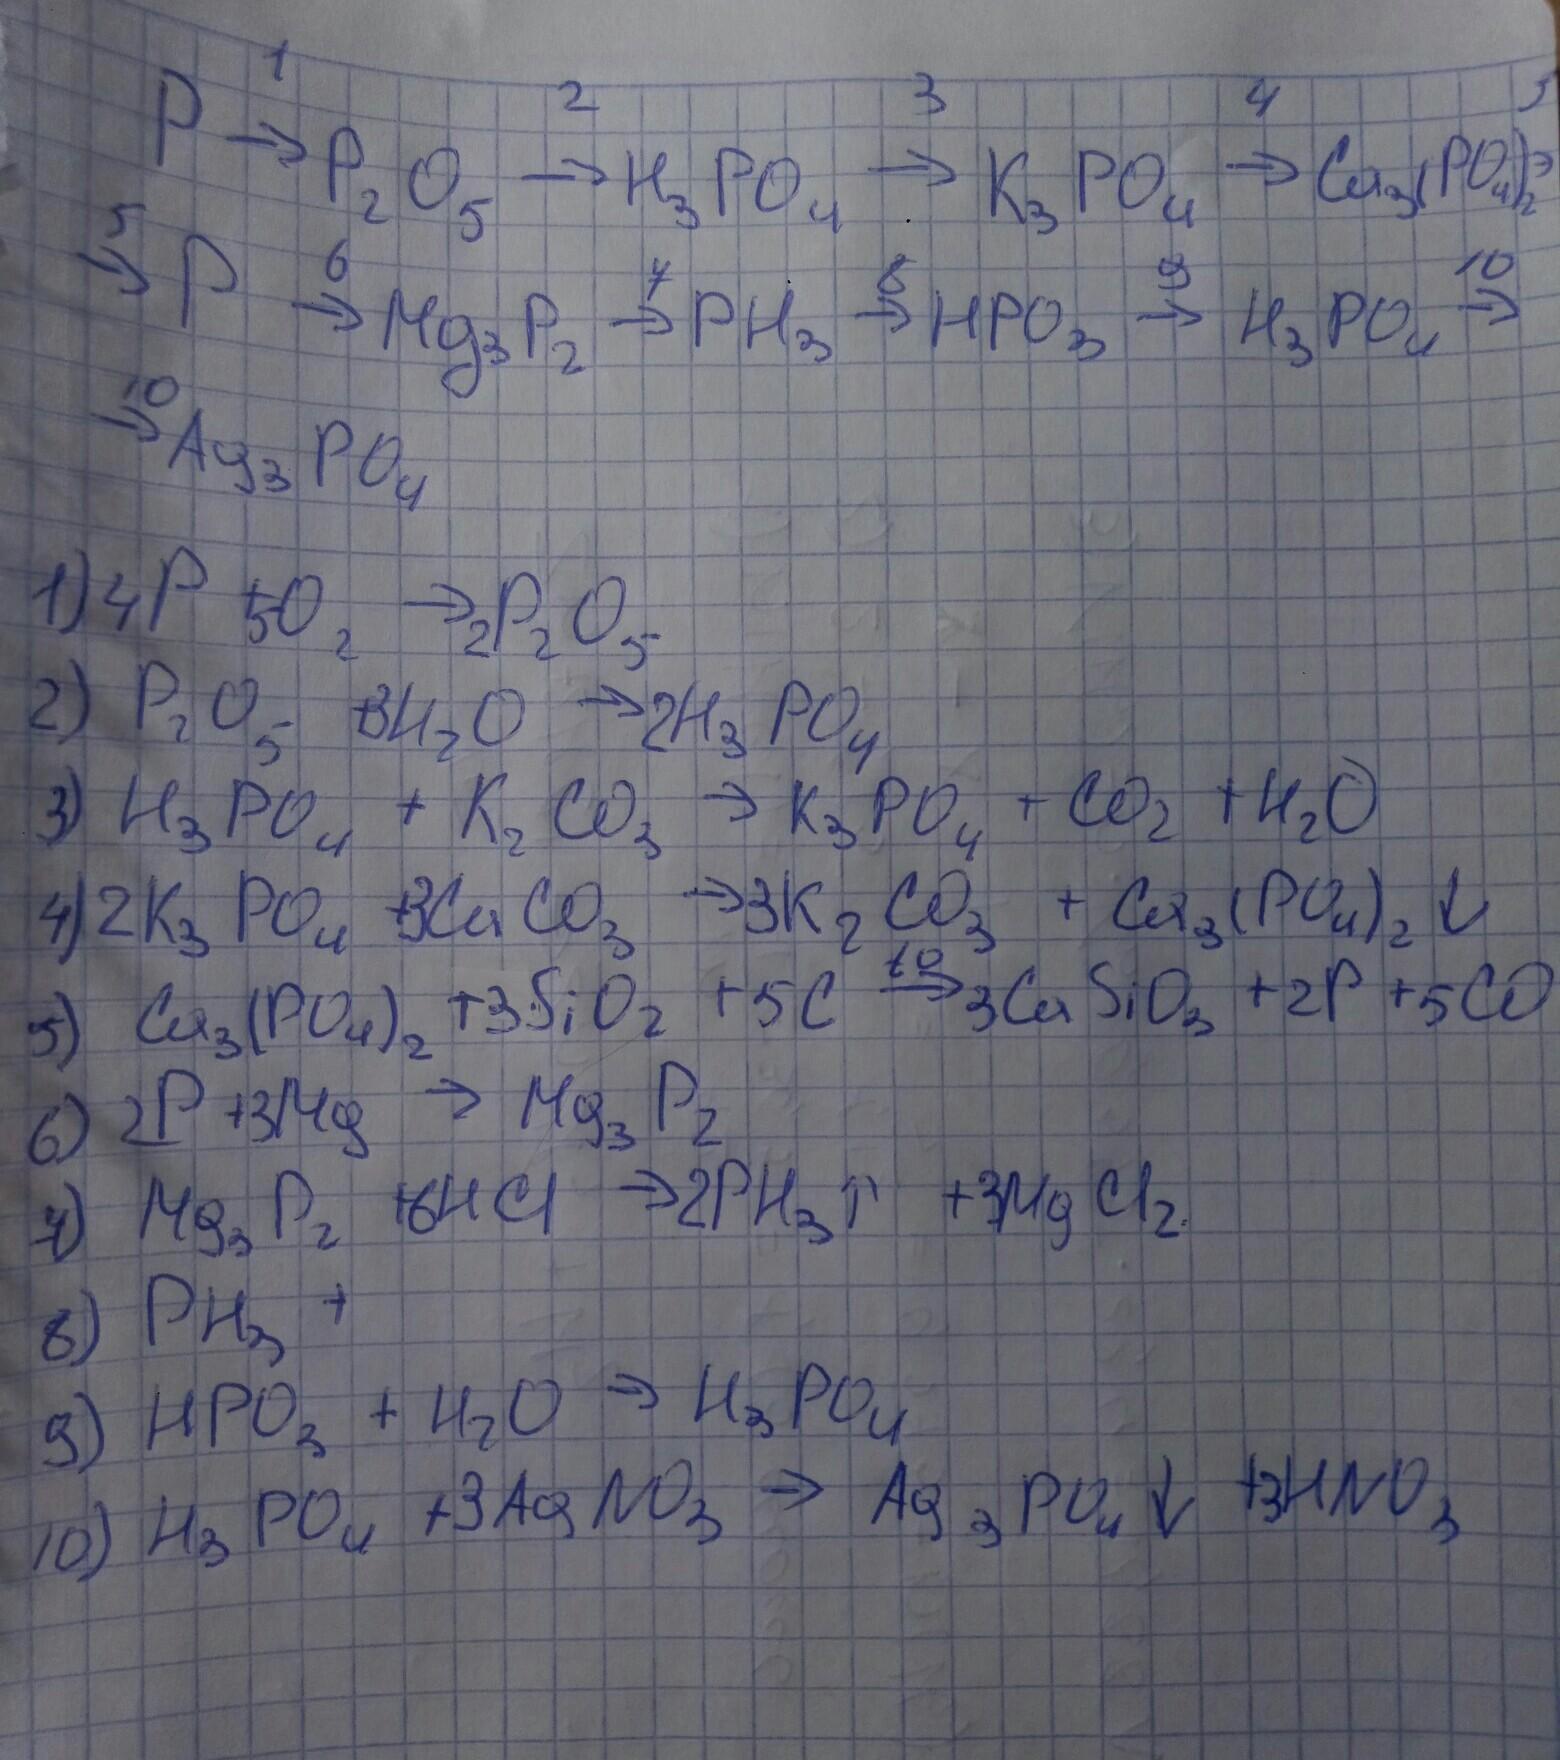 1 2 3 4 5
P → P₂O₅ → H₃PO₄ → K₃PO₄ → Ca₃(PO₄)₂ →
5→ P 6→ Mg₃P₂ 7→ PH₃ 8→ HPO₃ 9→ H₃PO₄ 10→
10→ Ag₃PO₄
1) 4P + 5O₂ → 2P₂O₅
2) P₂O₅ + 3H₂O → 2H₃PO₄
3) H₃PO₄ + K₂CO₃ → K₃PO₄ + CO₂ + H₂O
4) 2K₃PO₄ + 3CaCO₃ → 3K₂CO₃ + Ca₃(PO₄)₂ ↓
5) Ca₃(PO₄)₂ + 3SiO₂ + 5C t0→ 3CaSiO₃ + 2P + 5CO
6) 2P + 3Mg → Mg₃P₂
7) Mg₃P₂ + 6HCl → 2PH₃ ↑ + 3MgCl₂
8) PH₃ +
9) HPO₃ + H₂O → H₃PO₄
10) H₃PO₄ + 3AgNO₃ → Ag₃PO₄ ↓ + 3HNO₃